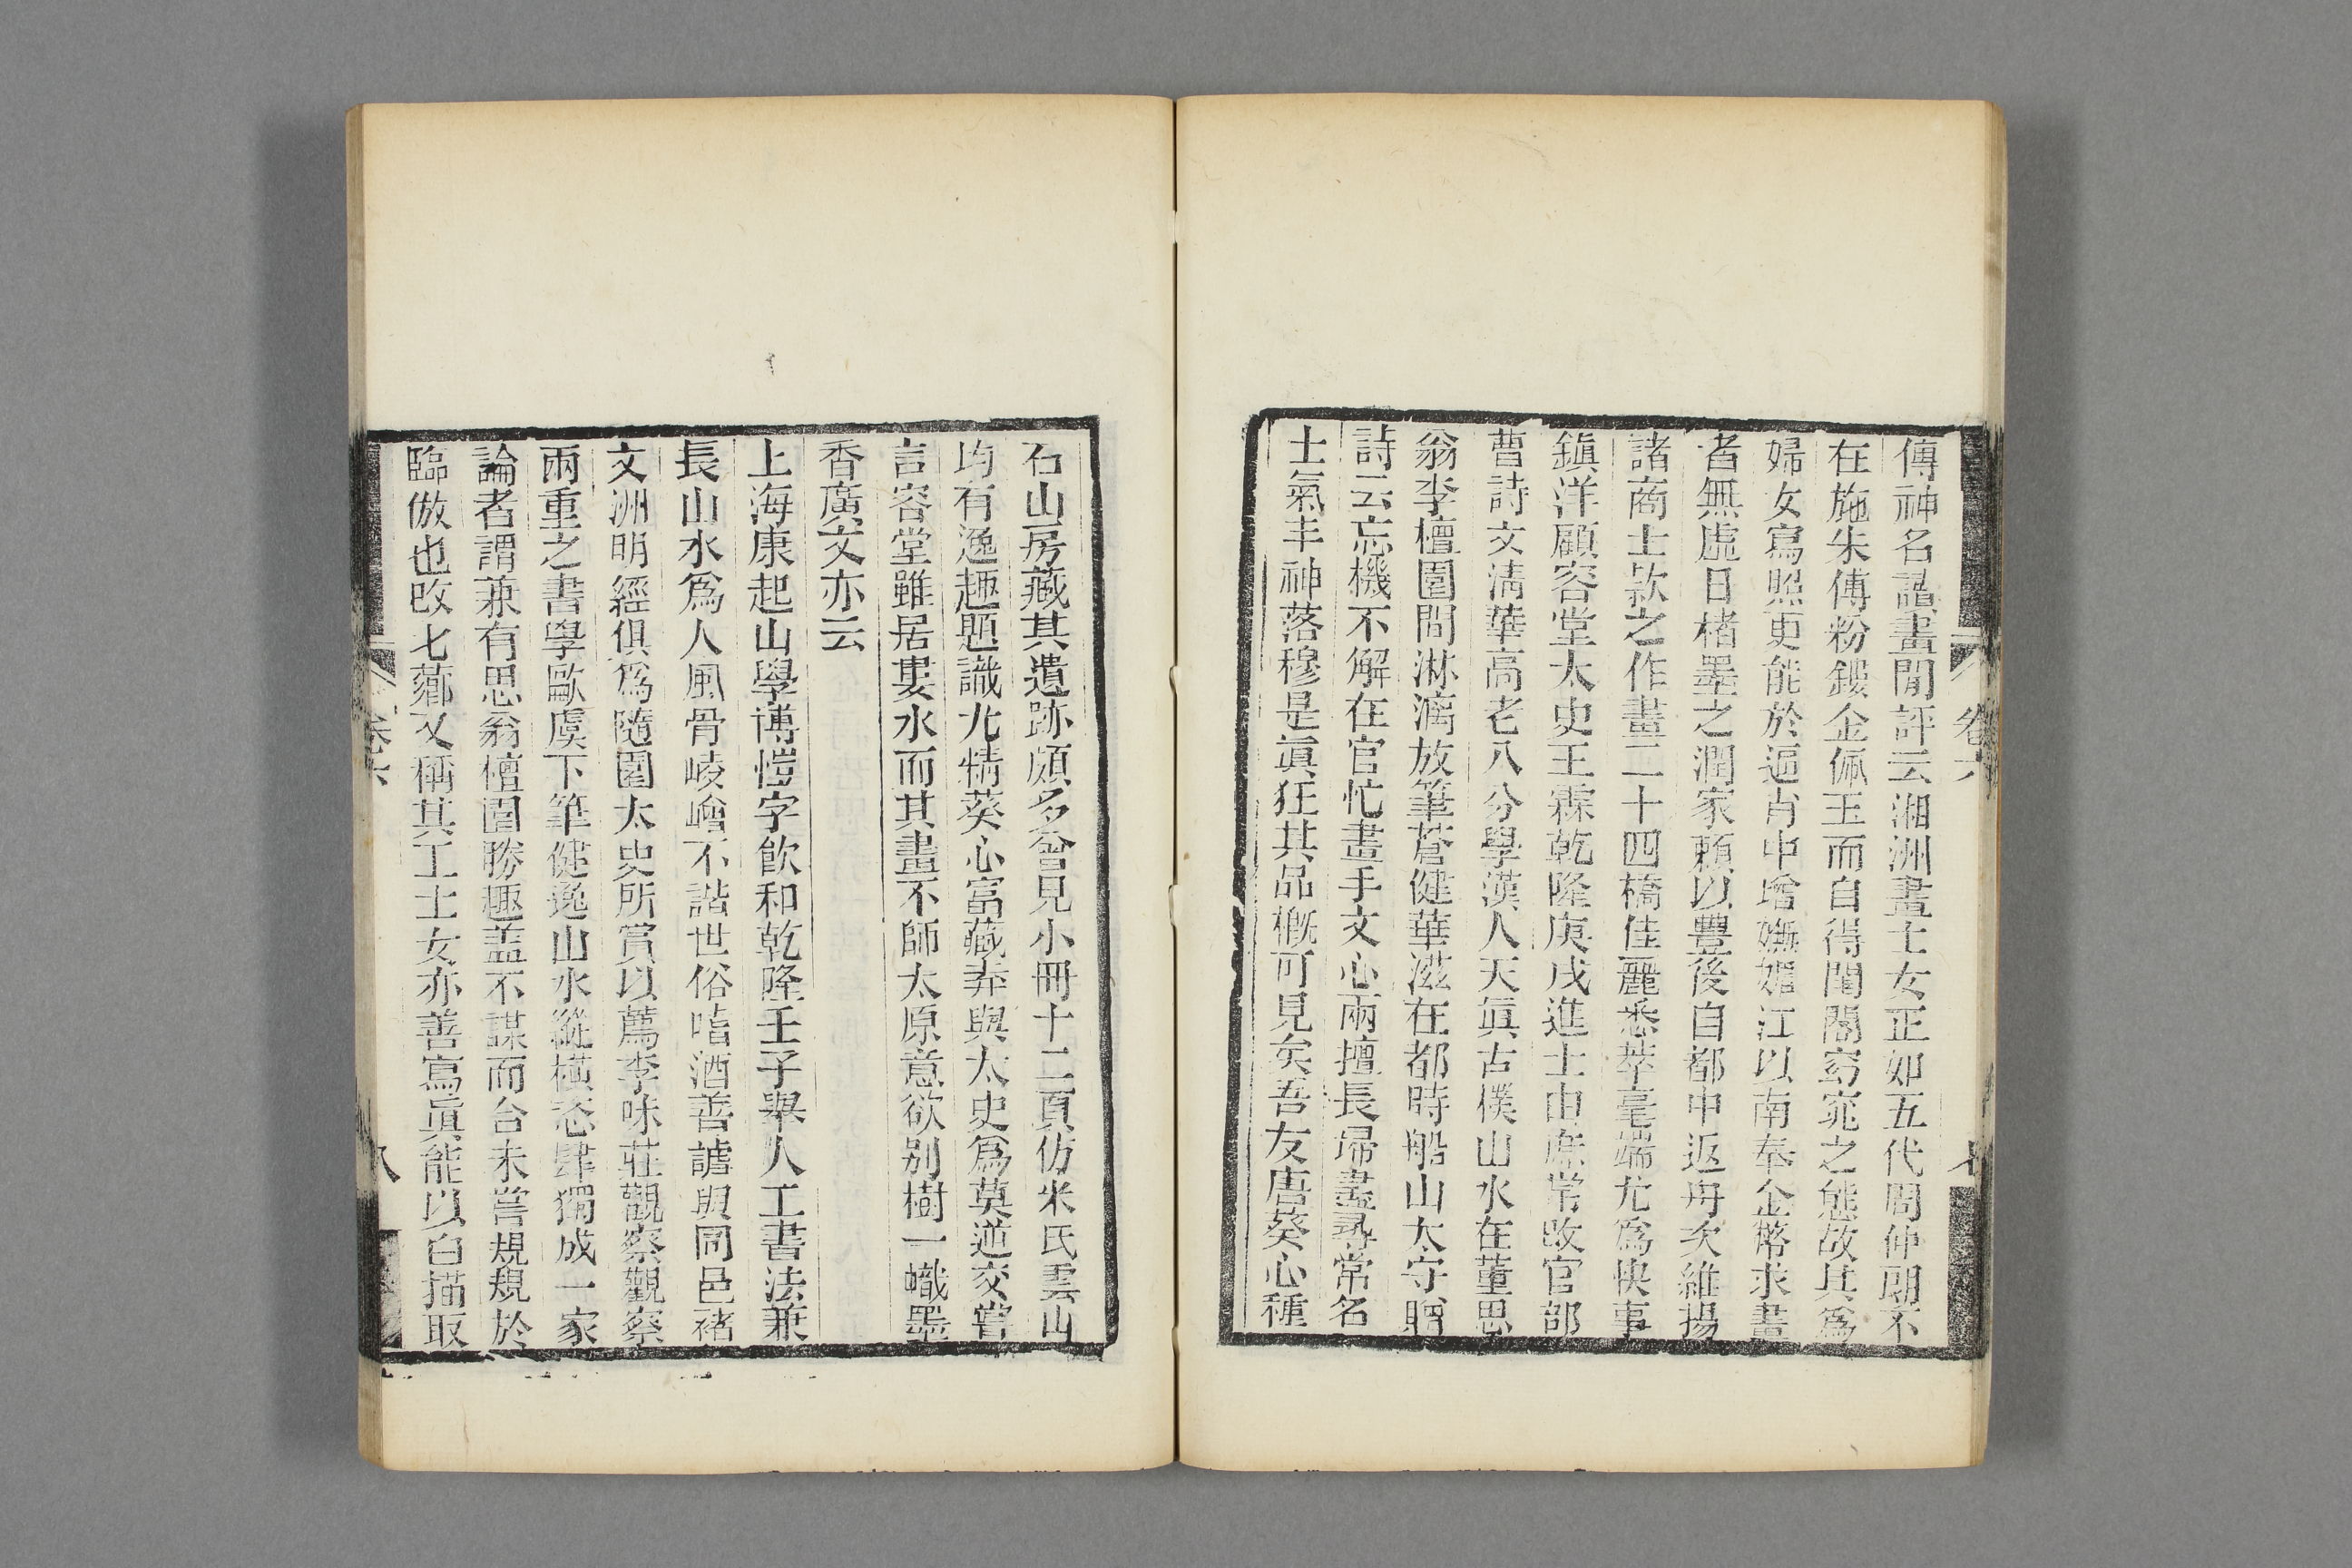 傳神名譪畫閒評云湘洲畫士女正如五代周仲朗不
在施朱傅粉鏤金佩玉而自得閨閤窈窕之態故其爲
婦女寫照更能於逼肖中增嫵媚江以南奉金幣求畫
者無虛日楮墨之潤家賴以豐後自都中返舟次維揚
諸商士欵之作畫二十四橋佳麗悉萃毫端尤爲快事
鎭洋顧容堂太史王霖乾隆庚戌進士由庶常改官部
曹詩文淸華高老八分學漢人天眞古僕山水在董思
翁李檀園間淋漓放筆蒼健華滋在都時船山太守贈
詩云忘機不解在官忙畫手文心兩擅長埽盡尋常名
士氣丰神落穆是眞狂其品槪可見矣吾友唐葵心種
石山房藏其遺跡頗多曾見小冊十二頁仿米氏雲山
均有逸趣題識尤精葵心富藏弆與太史爲莫逆交嘗
言容堂雖居婁水而其畫不師太原意欲别樹一幟墨
香廣文亦云
上海康起山學博愷字飮和乾隆壬子舉人工書法兼
長山水爲人風骨崚嶒不諧世俗嗜酒善謔與同邑褚
文洲明經俱爲隨園太史所賞以薦李味莊觀察觀察
兩重之書學歐虞下筆健逸山水縱橫恣肆獨成一家
論者謂兼有思翁檀園勝趣盖不謀而合未嘗規規於
臨倣也改七薌又稱其工士女亦善寫眞能以白描取
卷六
八